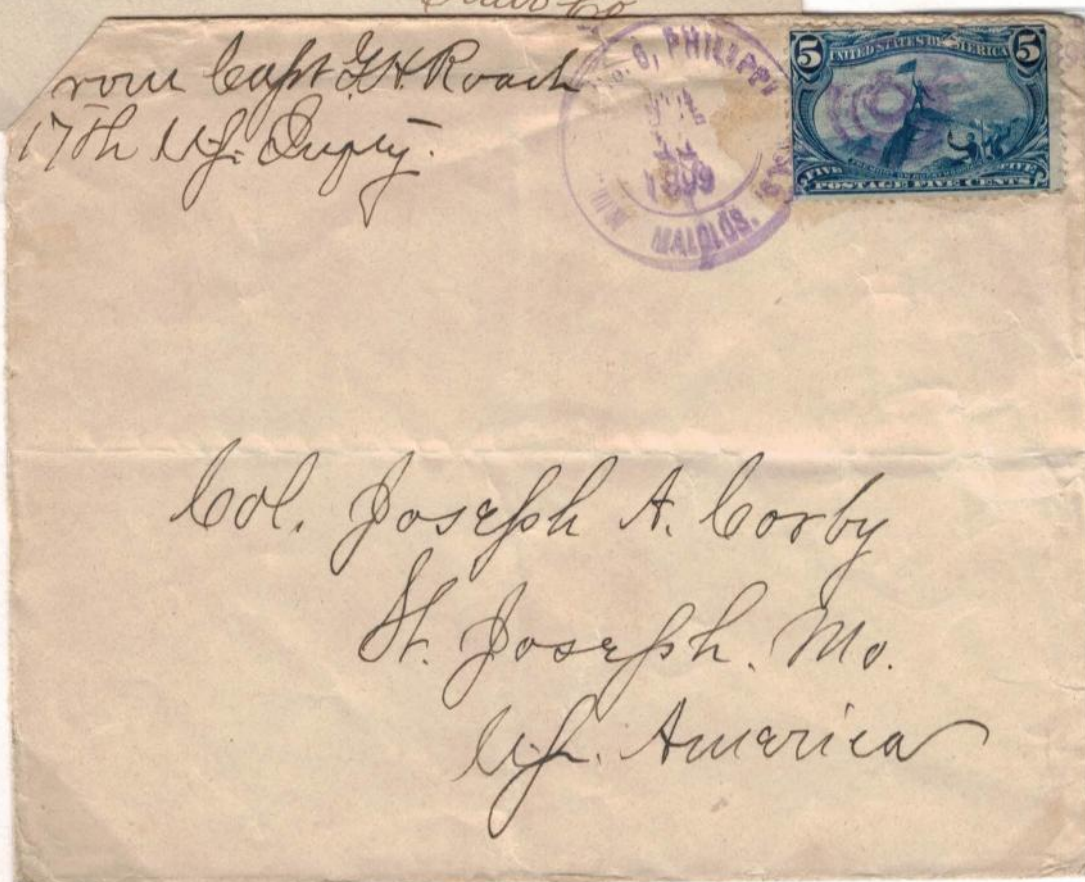 rom Capt G. H. Roach
17th U.S. Infty.
PHILIPPI
1899
MALOLOS.
5 UNITED STATES OF AMERICA 5
FIVE FIVE
POSTAGE FIVE CENTS
Col. Joseph A. Corby
St. Joseph. Mo.
U.S. America